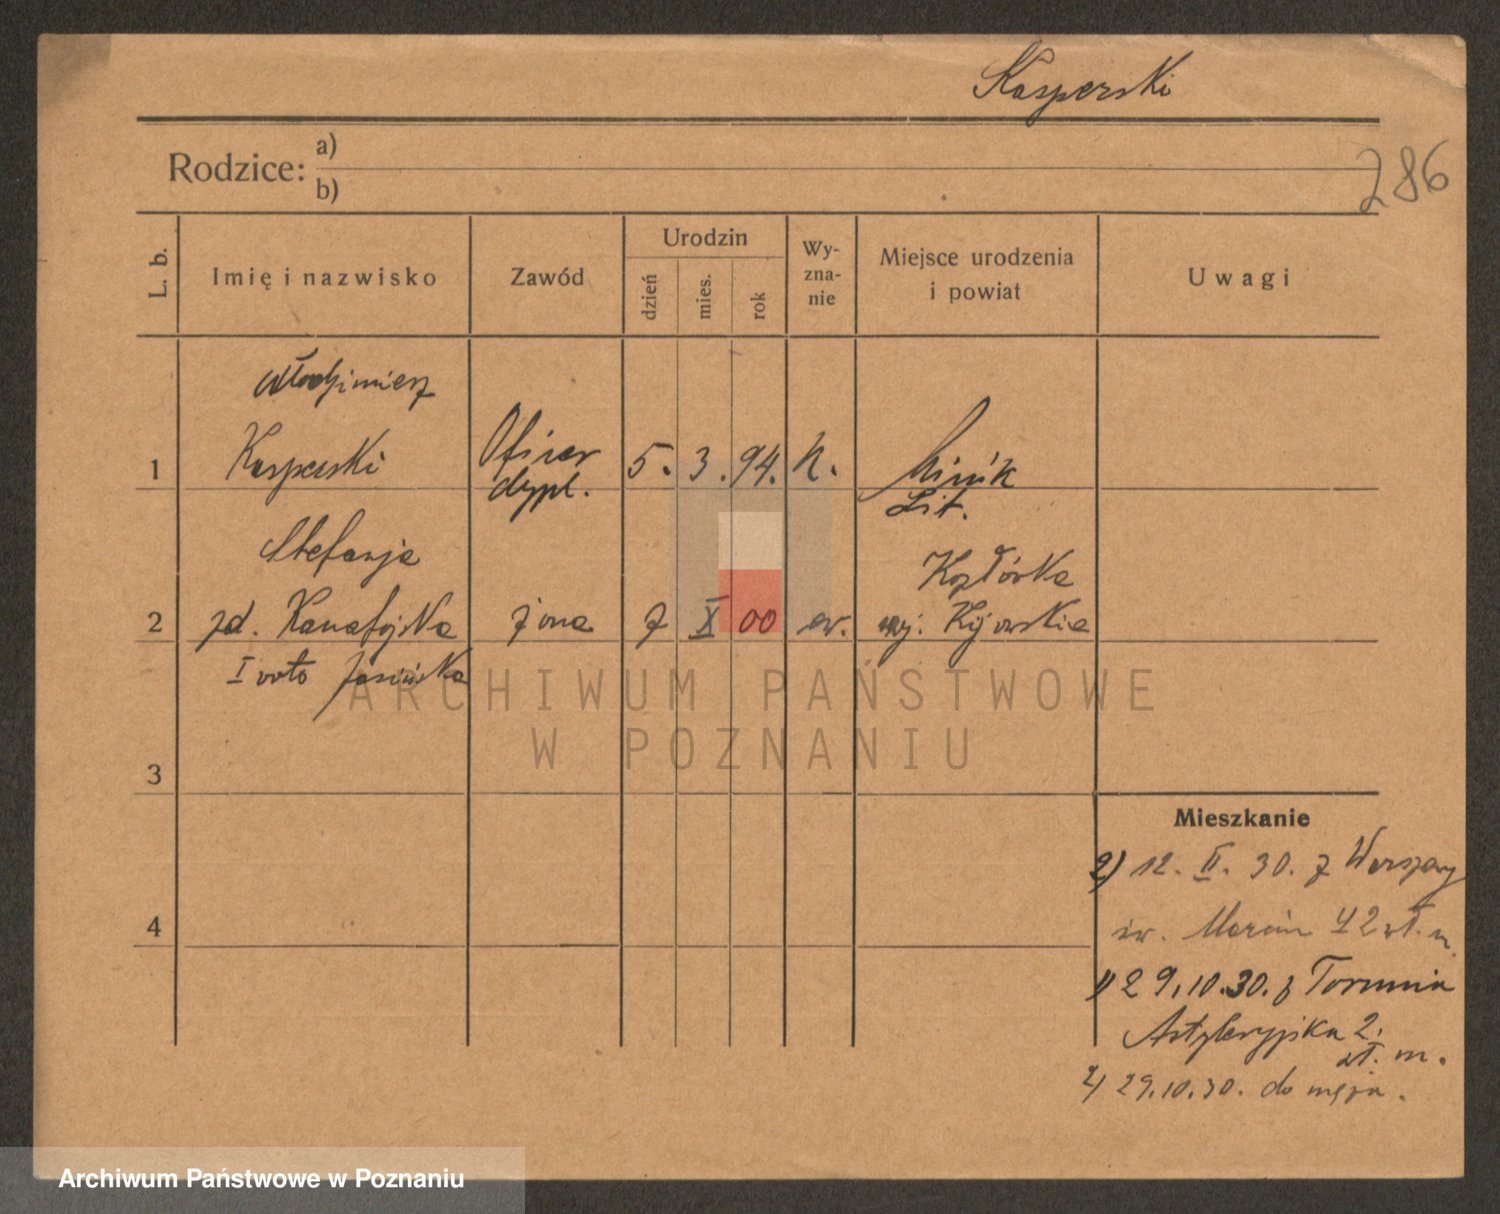 Kasperski
286
Rodzice: a)
b)
L. b.
Imię i nazwisko
Zawód
Urodzin
dzień
mies.
rok
Wy-
zna-
nie
Miejsce urodzenia
i powiat
Uwagi
Włodzimierz
1 Kasperski Oficer 5. 3. 94. Mińsk
dypl. Lit.
Stefanja Kozłówka
2 zd. żona 7 X 00 ew. woj. Kijowskie
I voto Jasińska
ARCHIWUM PAŃSTWOWE
W POZNANIU
3
Mieszkanie
2) 12. II. 30. z Warszawy
4
św. Marcin 42 wł. m.
1) 29.10.30. z Torunia
Artyleryjska 2.
wł. m.
2) 29.10.30. do męża.
Archiwum Państwowe w Poznaniu